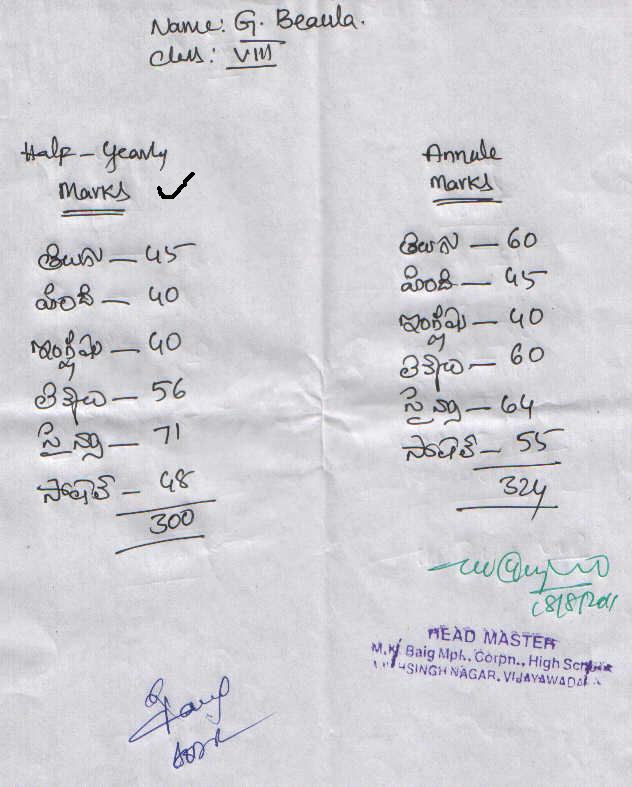 Name: G. Beaula.
Class: VIII
Half - Yearly
Marks
తెలుగు — 45
హిందీ — 40
ఇంగ్లీషు — 40
లెక్కలు — 56
సైన్సు — 71
సోషల్ — 48
300
Annule
Marks
తెలుగు — 60
హిందీ — 45
ఇంగ్లీషు — 40
లెక్కలు — 60
సైన్సు — 64
సోషల్ — 55
324
18/8/2011
HEAD MASTER
Baig Mpl., Corpn., High
SINGH NAGAR, VIJAYAWADA